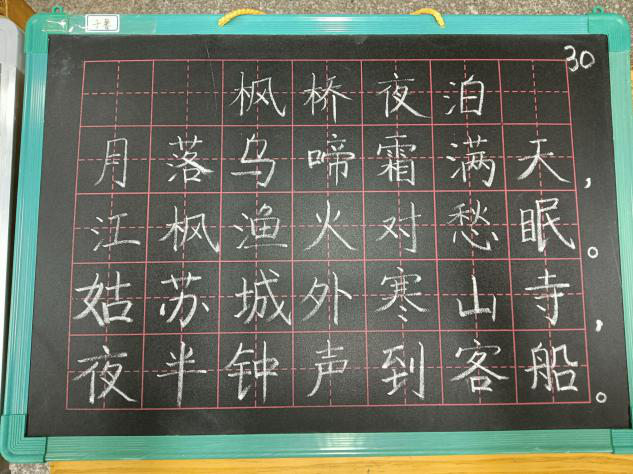 30
枫桥夜泊
月落乌啼霜满天，
江枫渔火对愁眠。
姑苏城外寒山寺，
夜半钟声到客船。